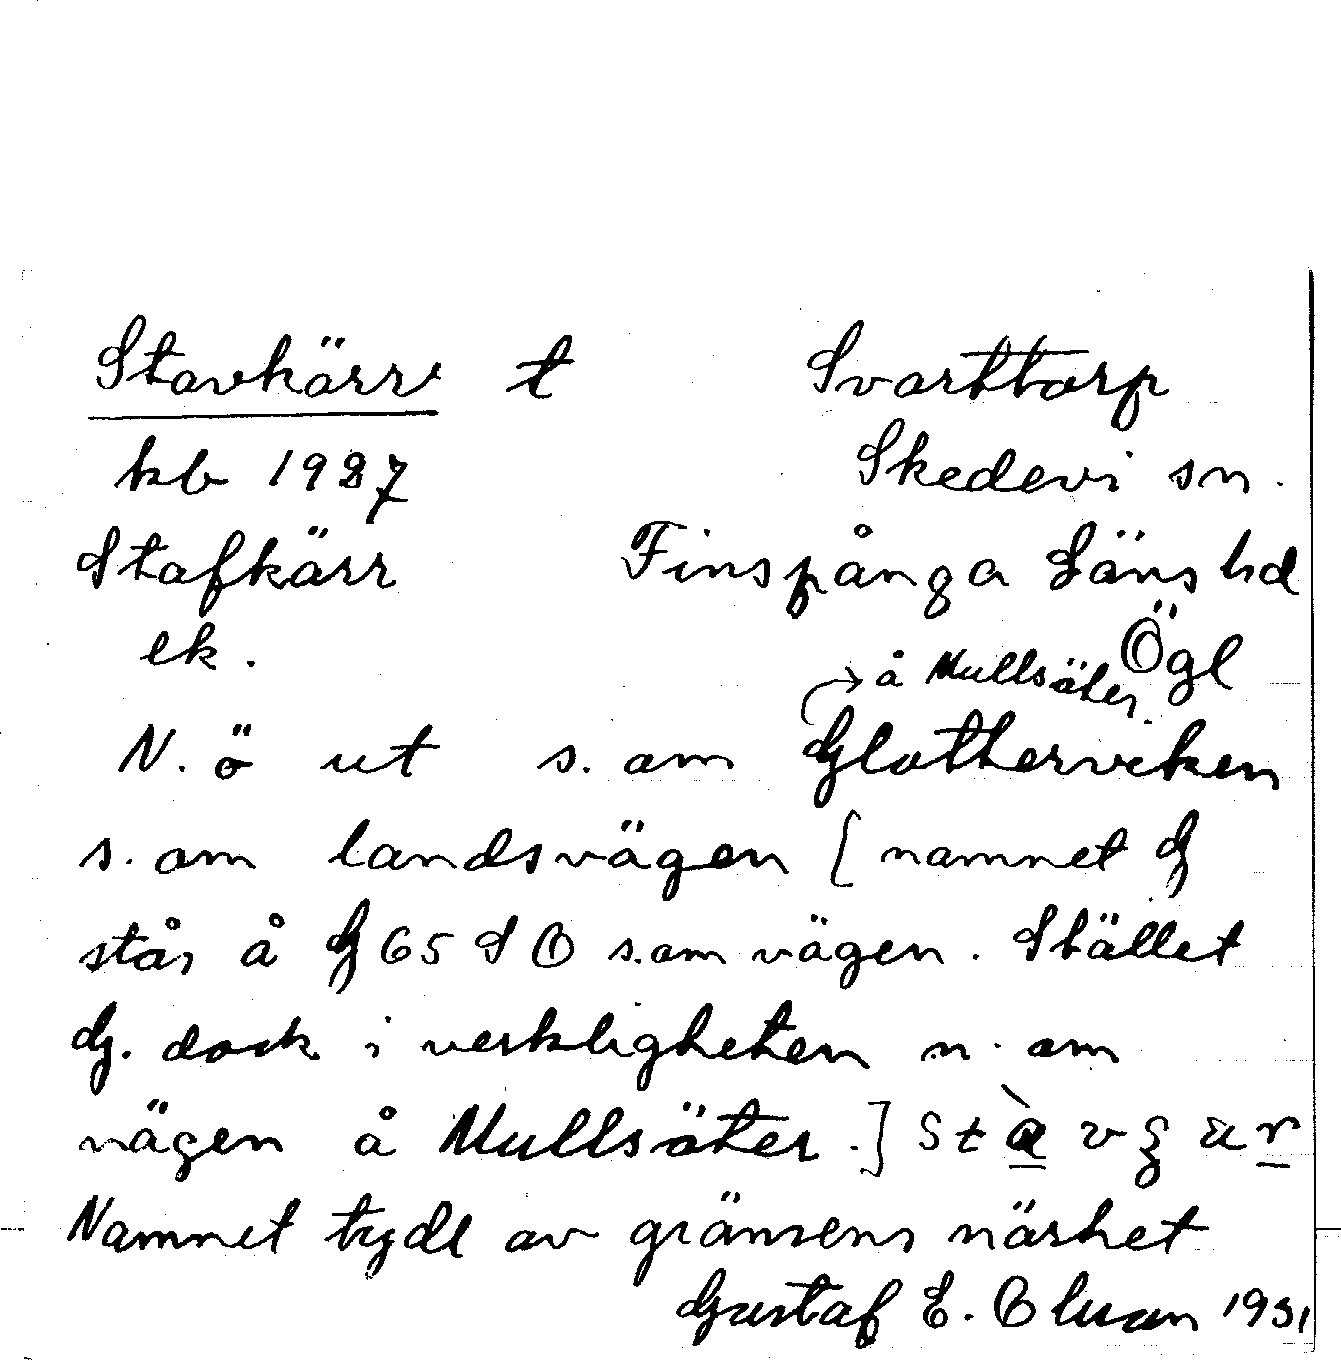 Stavkärr t Svarttorp
kb 1927 Skedevi sn.
Stafkärr Finspånga Läns hd
ek. Ögl
→ å Mullsäter.
N. ö ut s. om Glotterviken
s. om landsvägen [namnet G
står å G 65 S O s. om vägen. Stället
G. dock i verkligheten n. om
vägen å Mullsäter.]
Namnet tydl av gränsens närhet
Gustaf E. 1931